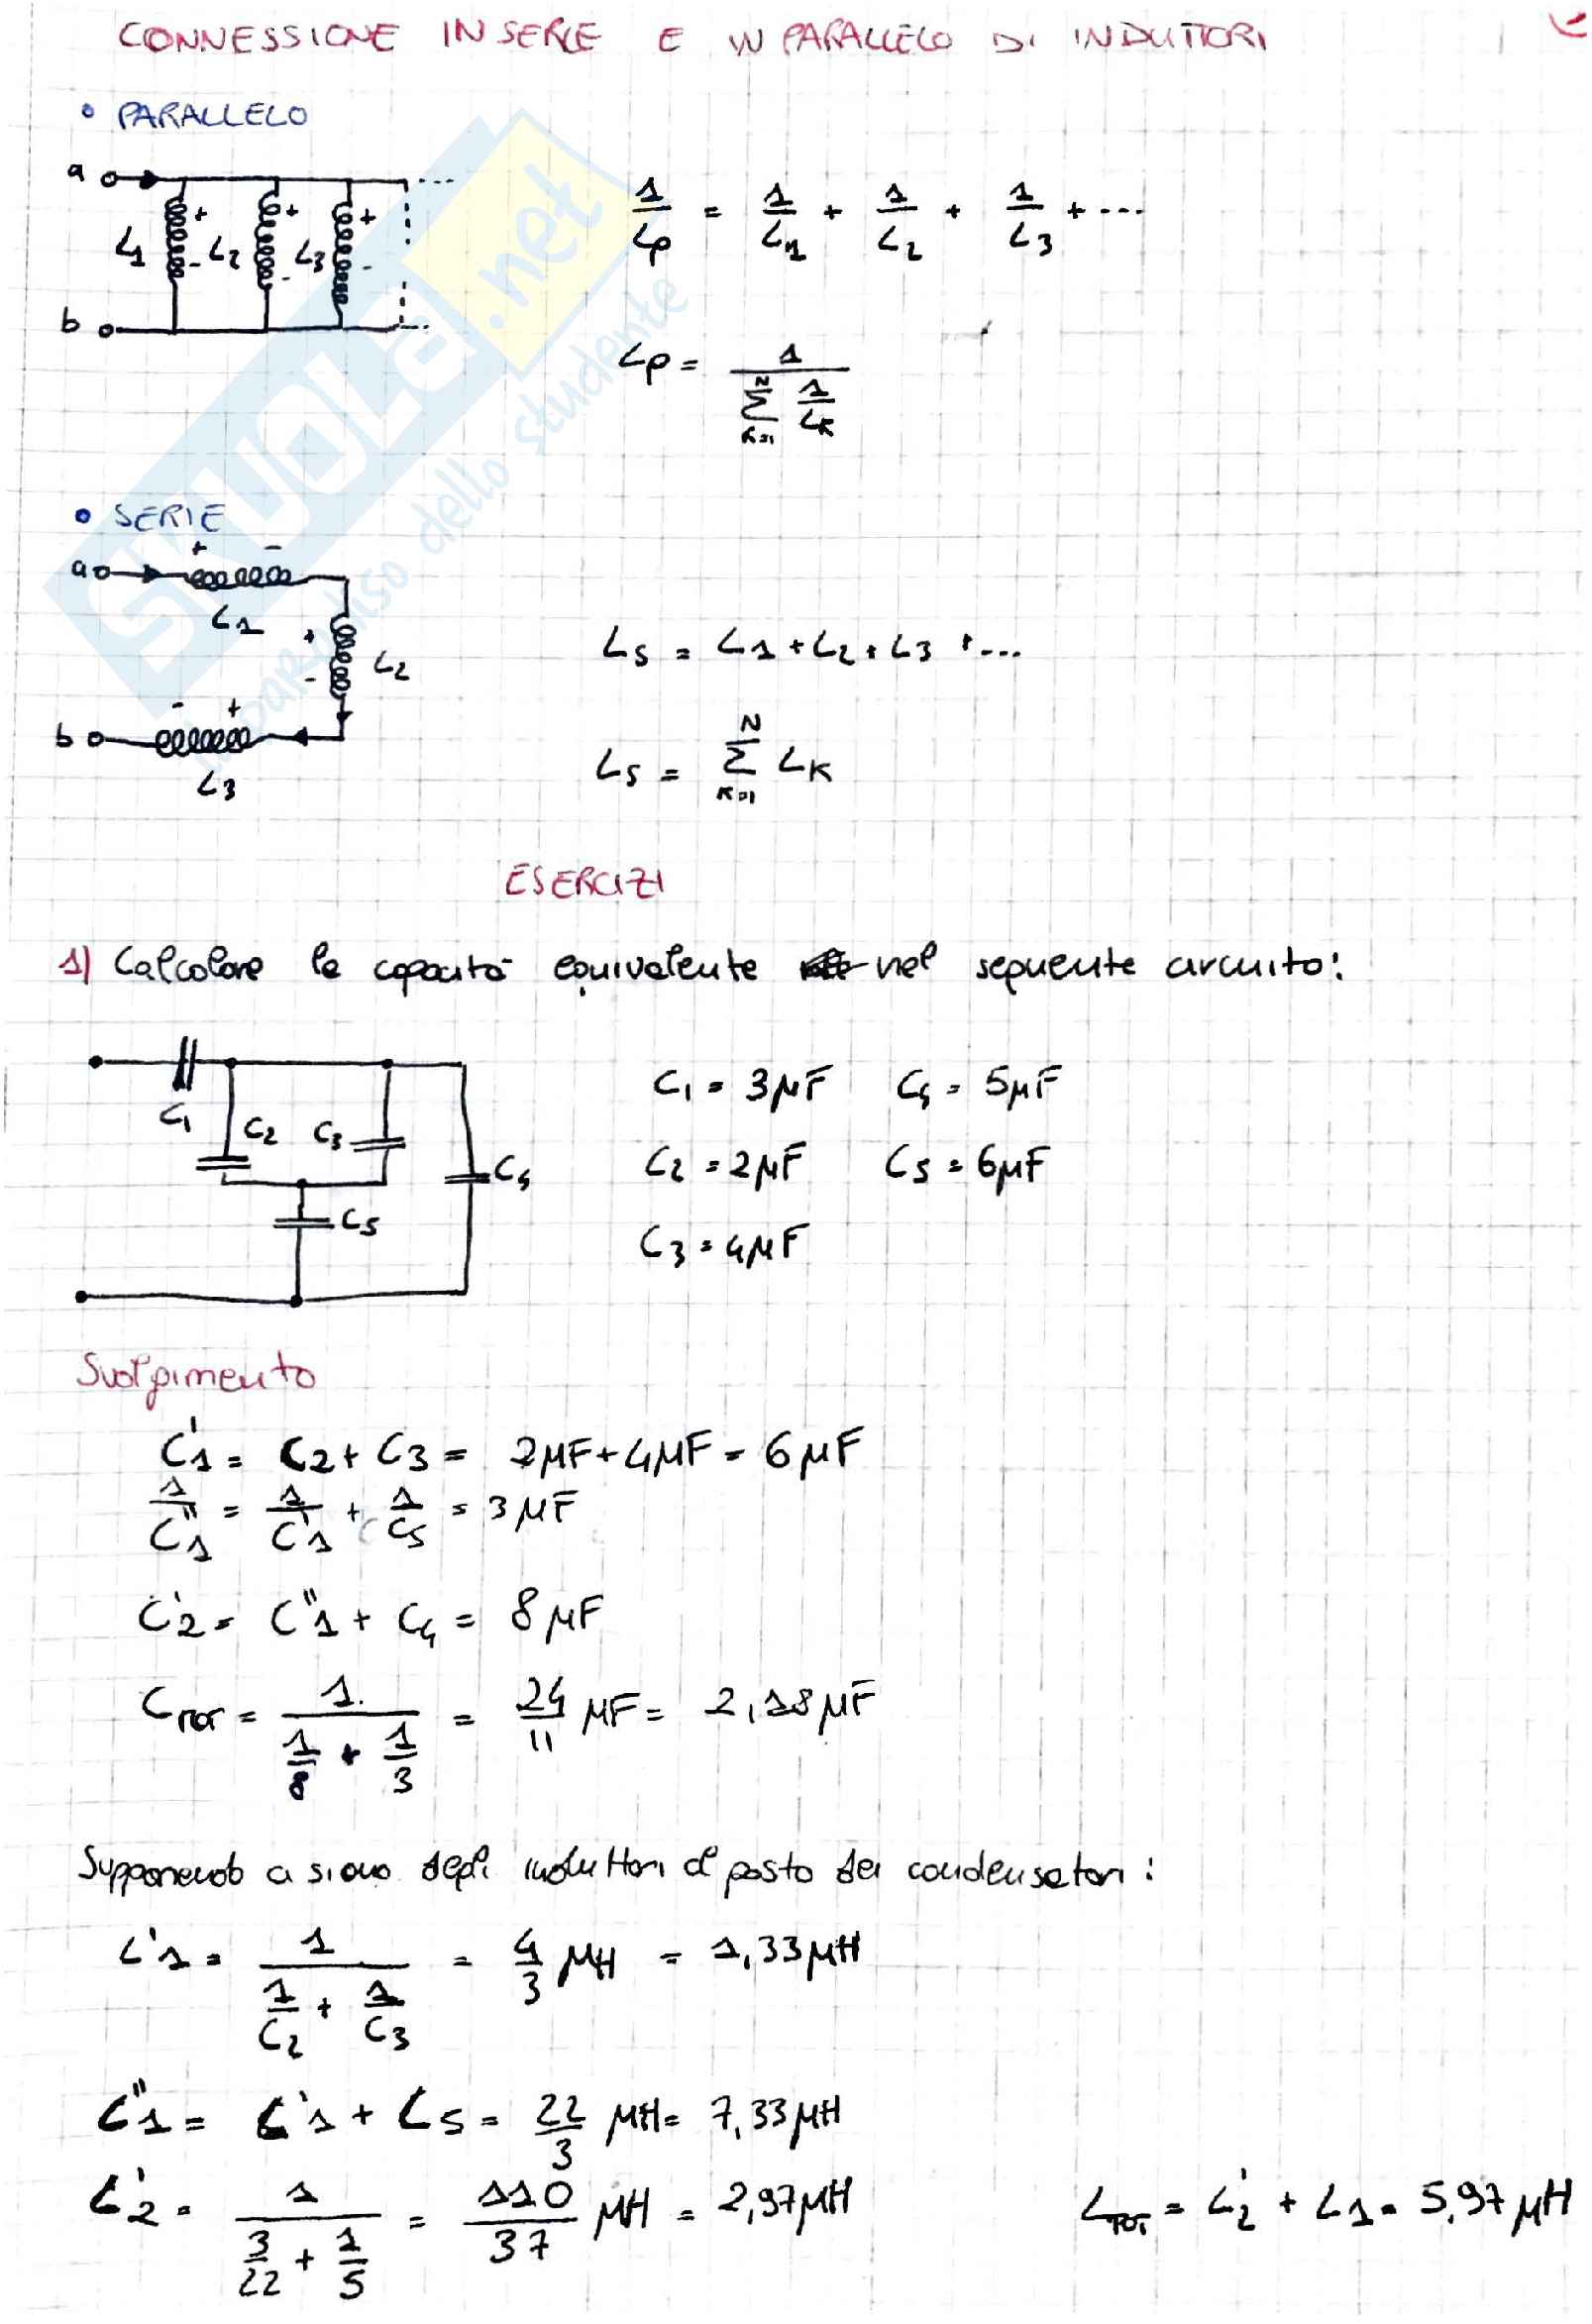 CONNESSIONE IN SERIE E IN PARALLELO DI INDUTTORI
• PARALLELO
a
L1 + - L2 + - L3 + -
b
1/Lp = 1/L1 + 1/L2 + 1/L3 + ...
Lp = 1 / (N Σ K=1 1/LK)
• SERIE
+ -
a
L1
+ - L2
- +
b
L3
LS = L1 + L2 + L3 + ...
LS = N Σ K=1 LK
ESERCIZI
1) Calcolare la capacità equivalente nel seguente circuito:
C1 C2 C3 C4 C5
C1 = 3μF C4 = 5μF
C2 = 2μF C5 = 6μF
C3 = 4μF
Svolgimento
C'1 = C2 + C3 = 2μF + 4μF = 6μF
1/C"1 = 1/C'1 + 1/C5 = 3μF
C'2 = C"1 + C4 = 8μF
CTOT = 1 / (1/8 + 1/3) = 24/11 μF = 2,18μF
Supponendo ci siano degli induttori al posto dei condensatori:
L'1 = 1 / (1/C2 + 1/C3) = 4/3 μH = 1,33μH
L"1 = L'1 + L5 = 22/3 μH = 7,33μH
L'2 = 1 / (3/22 + 1/5) = 110/37 μH = 2,97μH LTOT = L'2 + L1 = 5,97μH
SKUOLA.net
il paradiso dello studente